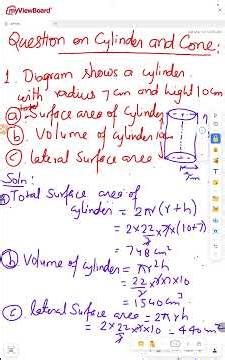 myViewBoard
Question on Cylinder and Cone:
1. Diagram shows a cylinder
with radius 7cm and hight 10cm
(a) total Surface area of Cylinder
(b). Volume of cylinder
(c). lateral Surface area
Soln:
(a) Total Surface area of
cylinder = 2πr(r+h)
= 2×22/7×7×(10+7)
= 748 cm²
(b) Volume of cylinder = πr²h
= 22/7×7×7×10
= 1540 cm³
(c) lateral Surface area = 2πrh
= 2×22/7×7×10 = 440 cm²